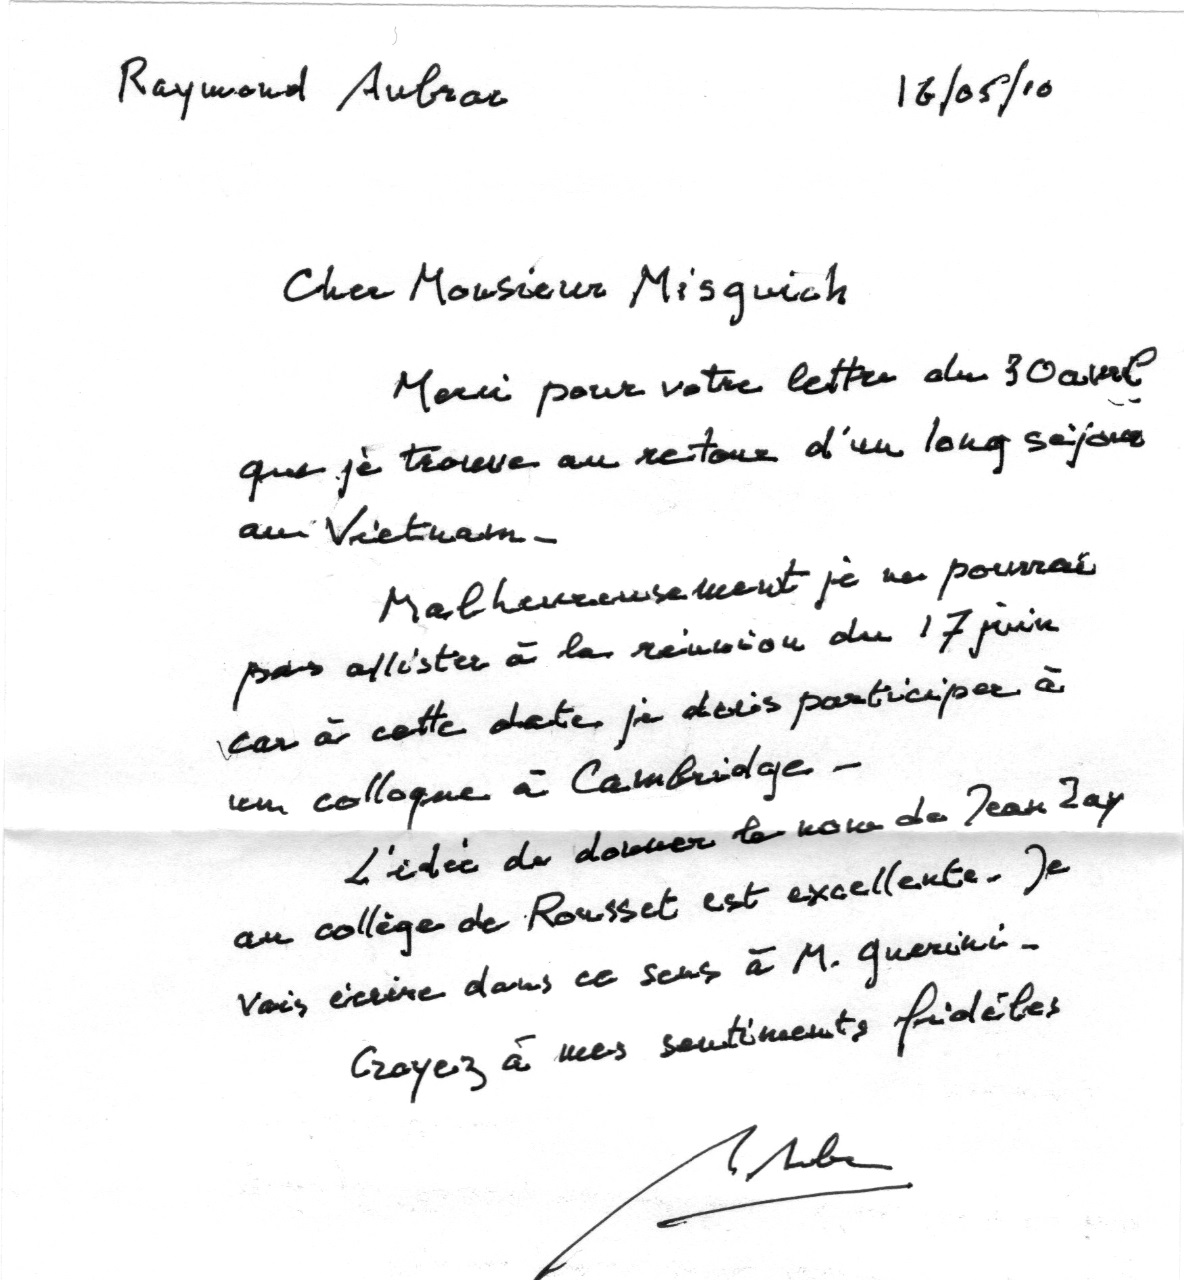 Raymond Aubrac 16/05/10
Cher Monsieur Misguich
Merci pour votre lettre du 30 avril
que je trouve au retour d'un long séjour
au Vietnam -
Malheureusement je ne pourrai
pas assister à la réunion du 17 juin
car à cette date je dois participer à
un colloque à Cambridge -
L'idée de donner le nom de Jean Zay
au collège de Rousset est excellente. Je
vais écrire dans ce sens à M. Guerini -
Croyez à mes sentiments fidèles